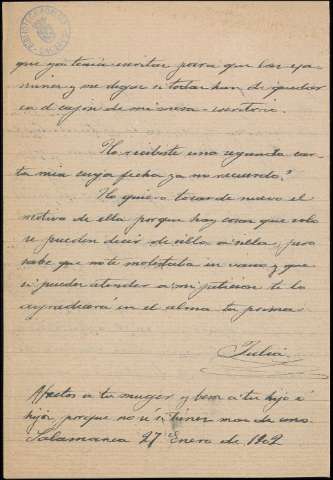 que ya tenia escritas para que las exa-
mines y me digas si todas han de quedar
en el cajón de mi mesa-escritorio.
No recibiste una segunda car-
ta mia cuya fecha ya no recuerdo?
No quiero tocar de nuevo el
motivo de ella porque hay cosas que solo
se pueden decir de silla a silla, pero
sabe que no te molestaba en vano y que
si puedes atender a mi peticion te lo
agradecerá en el alma tu prima
Julia
Afectos a tu muger y besos a tu hijo é
hijos porque no sé si tienes mas de uno.
Salamanca 27 Enero de 1902